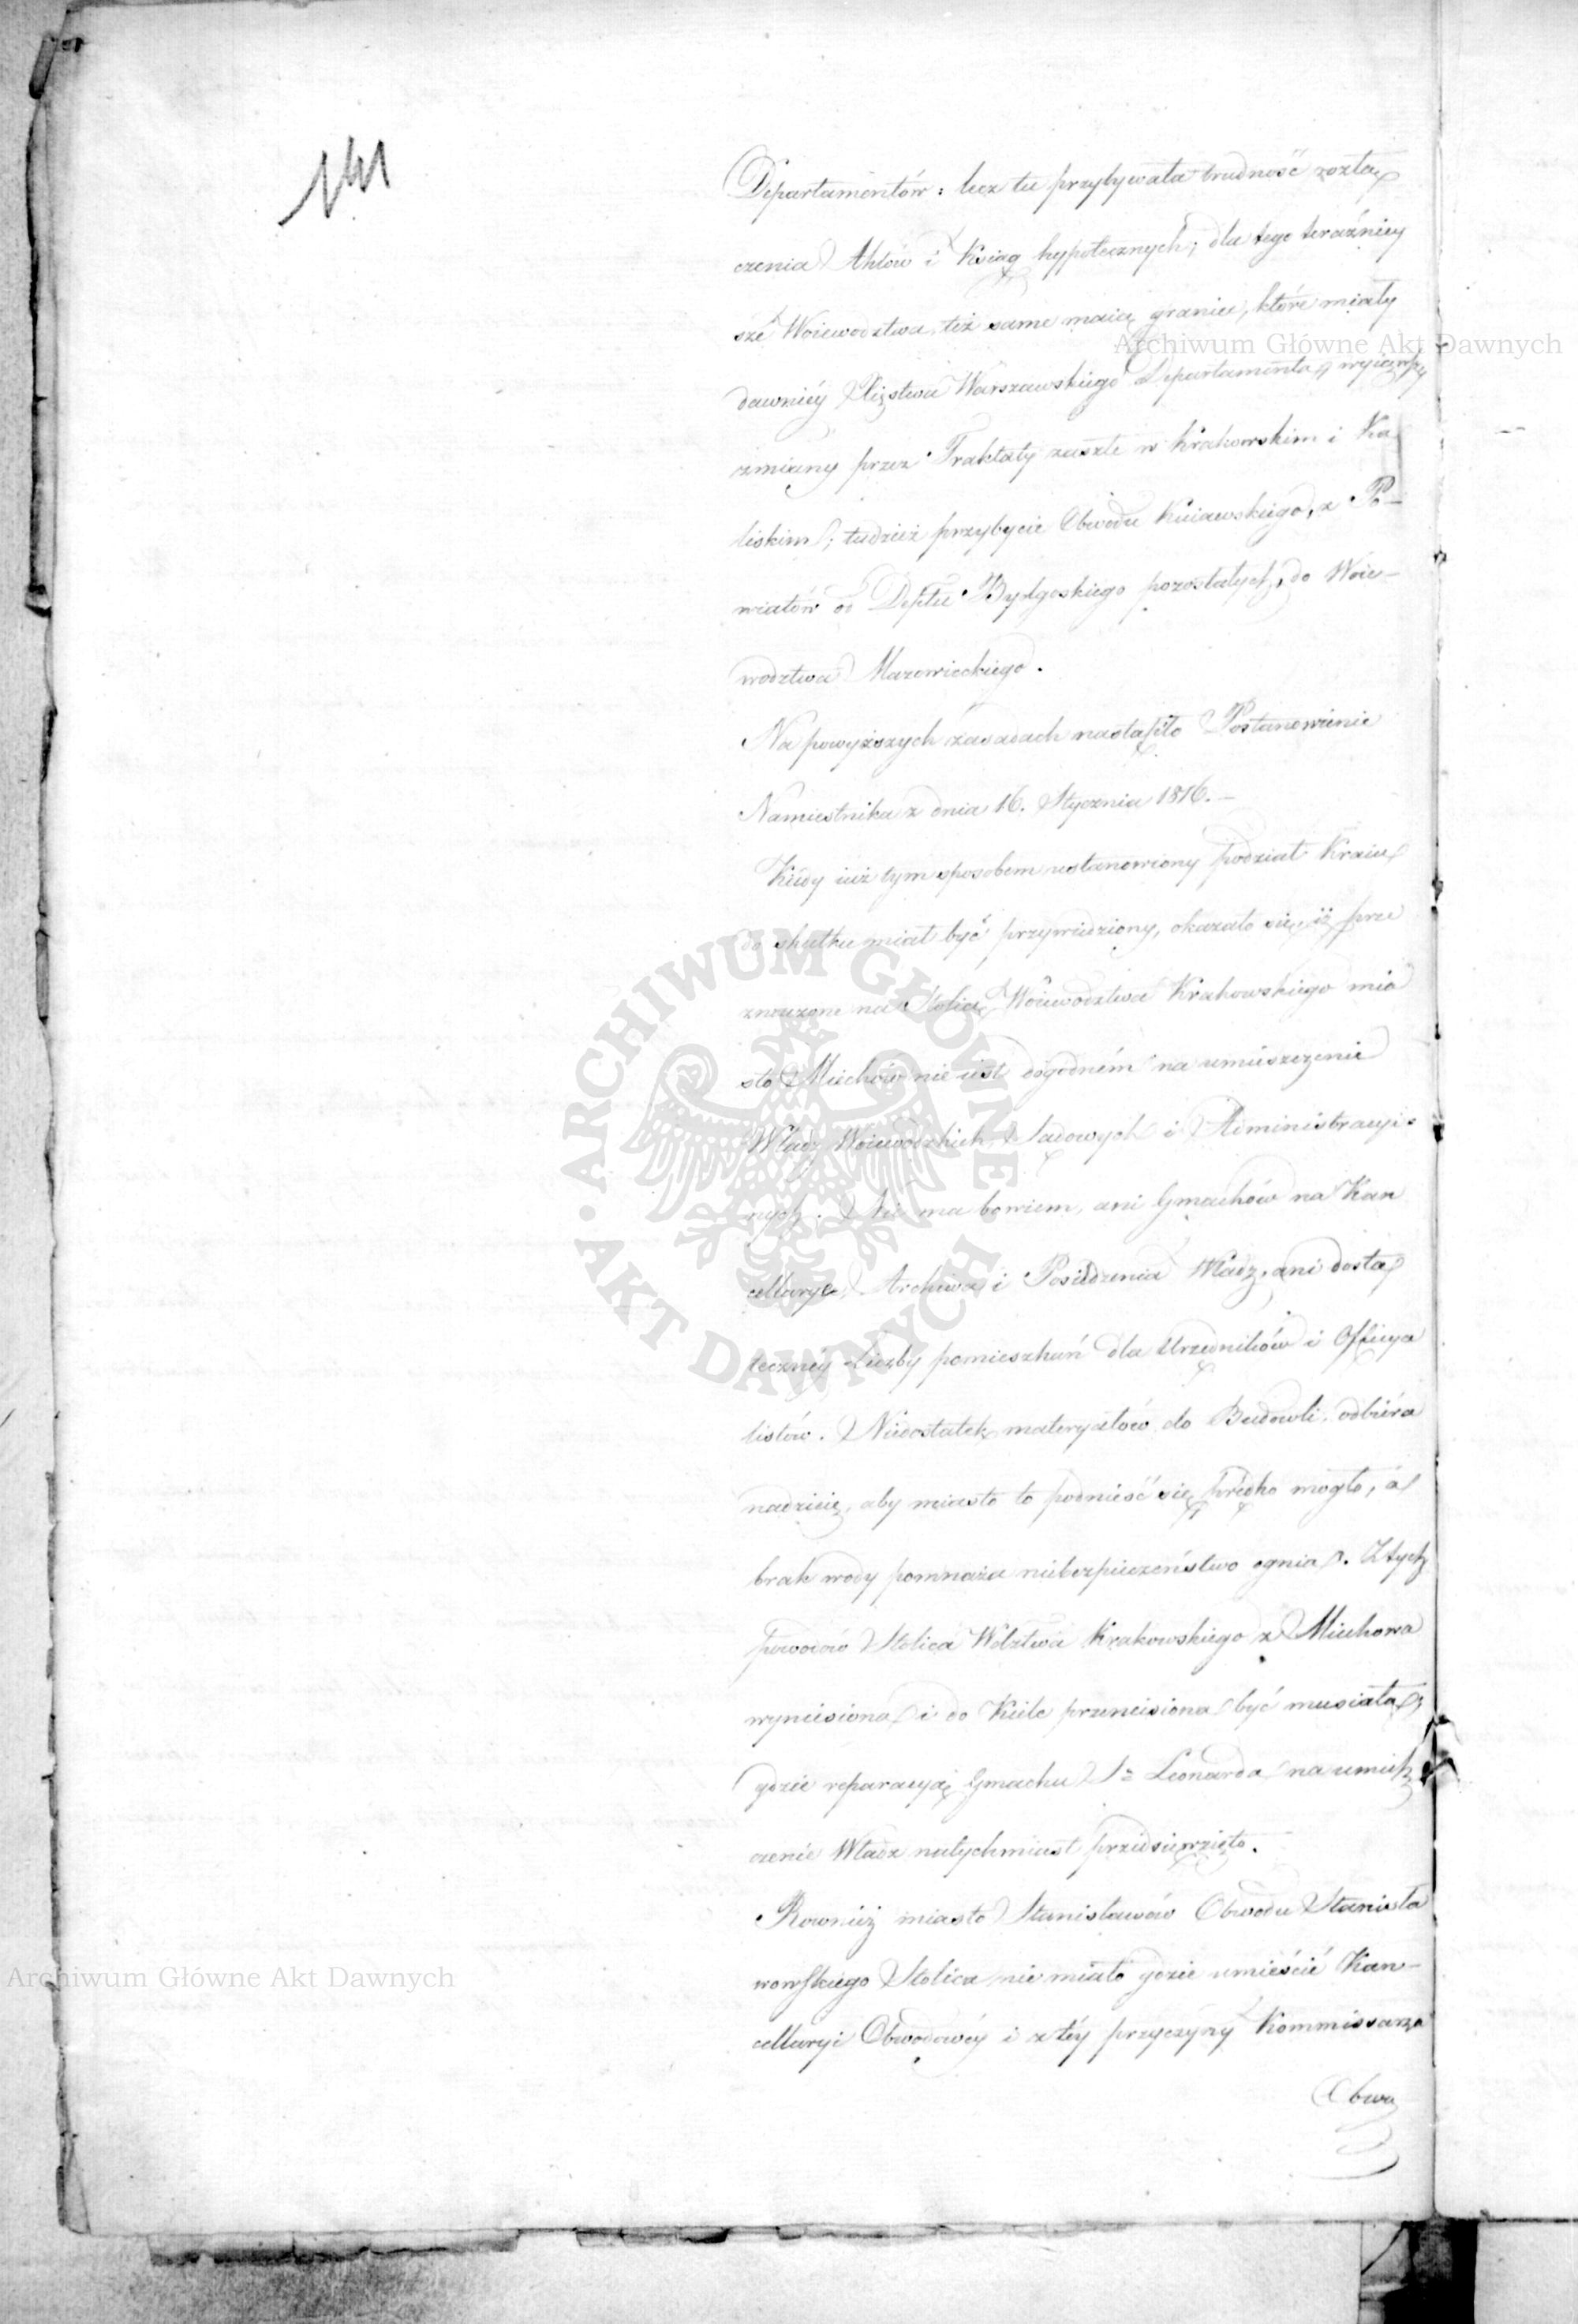 141
Departamentów: lecz tu przybywała trudność rozłą
czenia Aktów i Ksiąg hypotecznych; dla tego teraźniey
sze Woiewodztwa też same maią granice, które miały
dawniéy Xięstwa Warszawskiego Departamenta, wyiąwszy
zmiany przez Traktaty zaszłe w Krakowskim i Ka
liskim; tudzież przybycie Obwodu Kuiawskiego, z Po-
wiatów od Deptu Bydgoskiego pozostałych, do Woie-
wodztwa Mazowieckiego.
Na powyższych zasadach nastąpiło Postanowienie
Namiestnika z dnia 16. Stycznia 1816. -
Kiedy iuż tym sposobem ustanowiony podział Kraiu
do skutku miał być przywiedziony, okazało się, iż prze
znaczone na Stolicę Woiewodztwa Krakowskiego mia
sto Miechów nie iest dogodném na umieszczenie
Władz Woiewodzkich Sądowych i Administracyi-
nych. Nie ma bowiem, ani Gmachów na Kan
cellarye, Archiwa i Posiedzenia Władz, ani dosta
teczney Liczby pomieszkań dla Urzędników i Officya
listów. Niedostatek materyałów do Budowli, odbiéra
nadzieię, aby miasto to podnieść się prędko mogło, a
brak wody pomnaża niebezpieczeństwo ognia. Z tych
powodów Stolica Wdztwa Krakowskiego z Miechowa
wyniesiona i do Kielc przeniesiona być musiała,
gdzie reparacyą Gmachu Sgo Leonarda na umiesz
czenie Władz natychmiast przedsięwzięto.
Rownież miasto Stanisławów Obwodu Stanisła
wowskiego Stolica nie miało gdzie umieścić Kan-
cellaryi Obwodowéy i z téy przyczyny Kommissarza
Obwo
Archiwum Główne Akt Dawnych
ARCHIWUM GŁÓWNE AKT DAWNYCH
Archiwum Główne Akt Dawnych